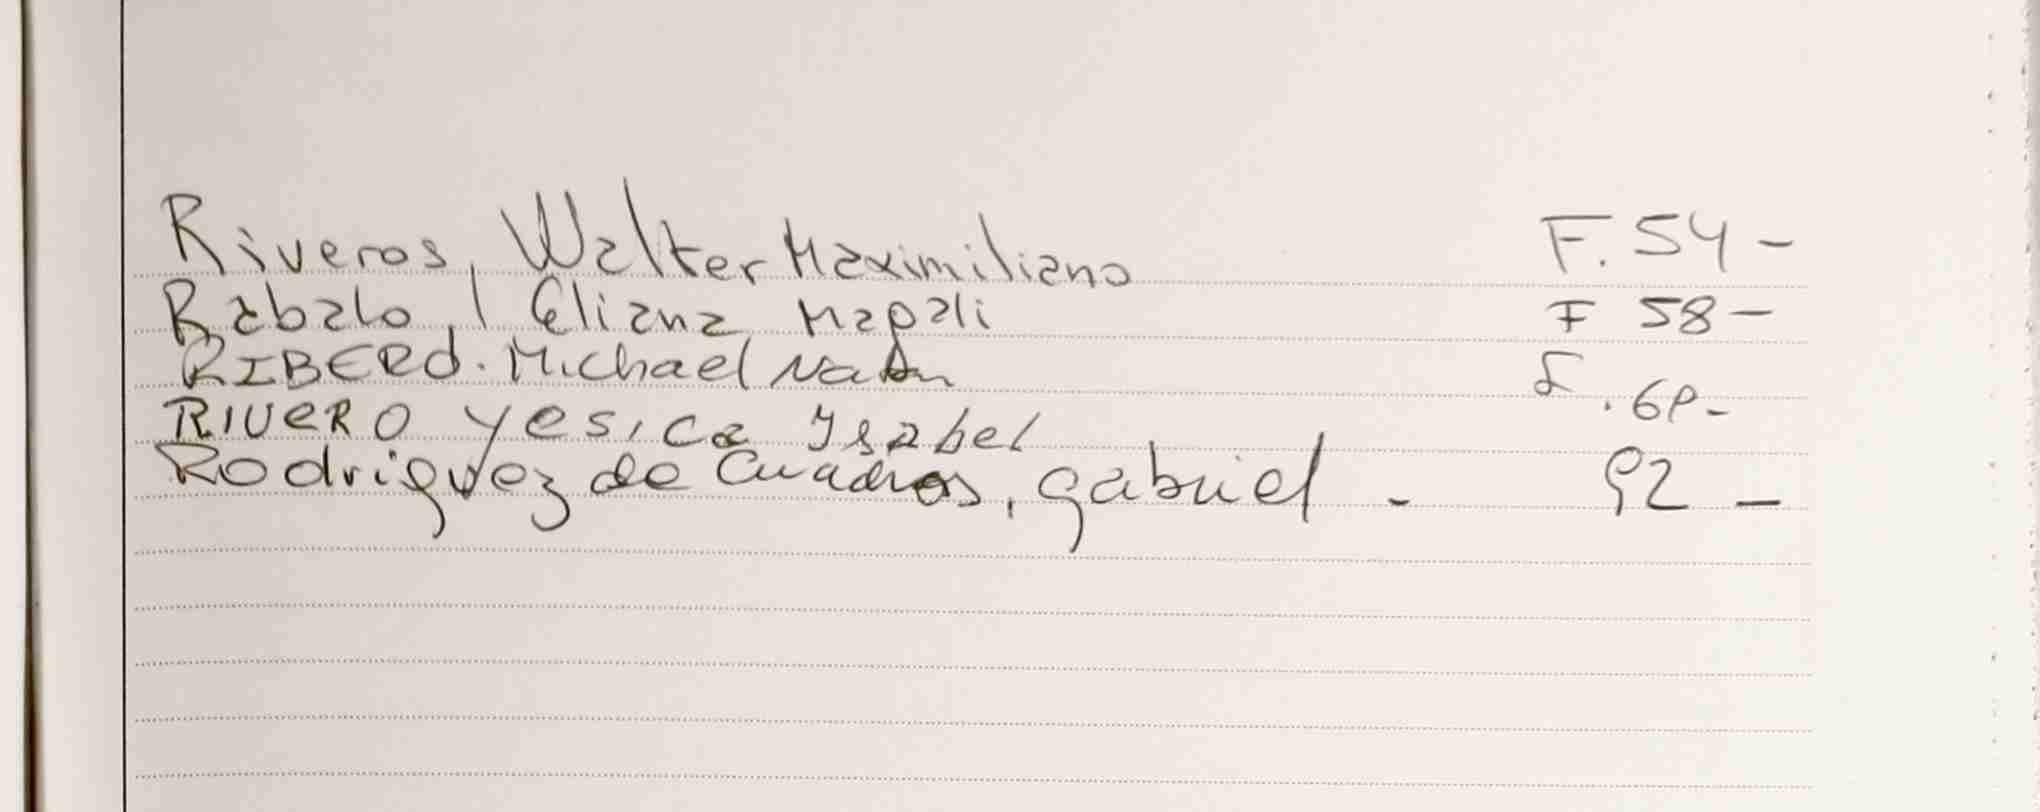 Riveros, Walter Maximiliano F. 54 -
Rabalo, Eliana Magali F 58 -
RIBERO. Michael Natan F. 69-
RIVERO Yesica Ysabel
Rodriguez de Cuadros, gabriel - 92 -